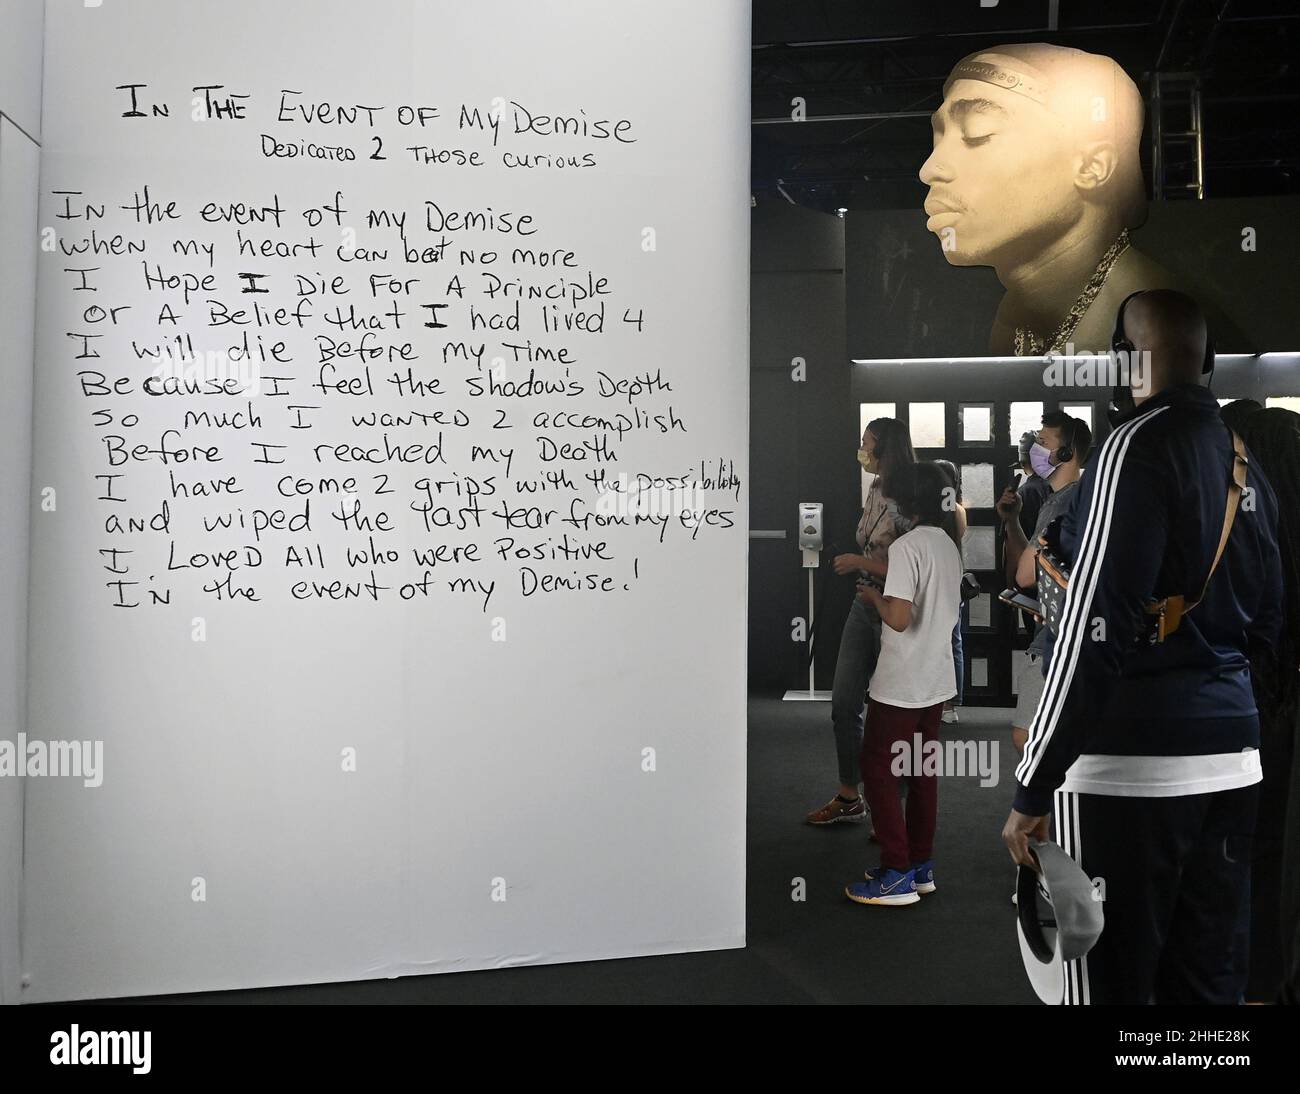 IN THE EVENT OF MY DEMISE
DEDICATED 2 THOSE CURIOUS
IN the event of my Demise
when my heart can beat no more
I Hope I Die For A Principle
or A Belief that I had lived 4
I will die Before my Time
Because I feel the shadow's Depth
so much I wanted 2 accomplish
Before I reached my Death
I have come 2 grips with the possibility
and wiped the last tear from my eyes
I Loved All who were Positive
In the event of my Demise!
alamy
a
alamy
Image ID: 2HHE28K
www.alamy.com